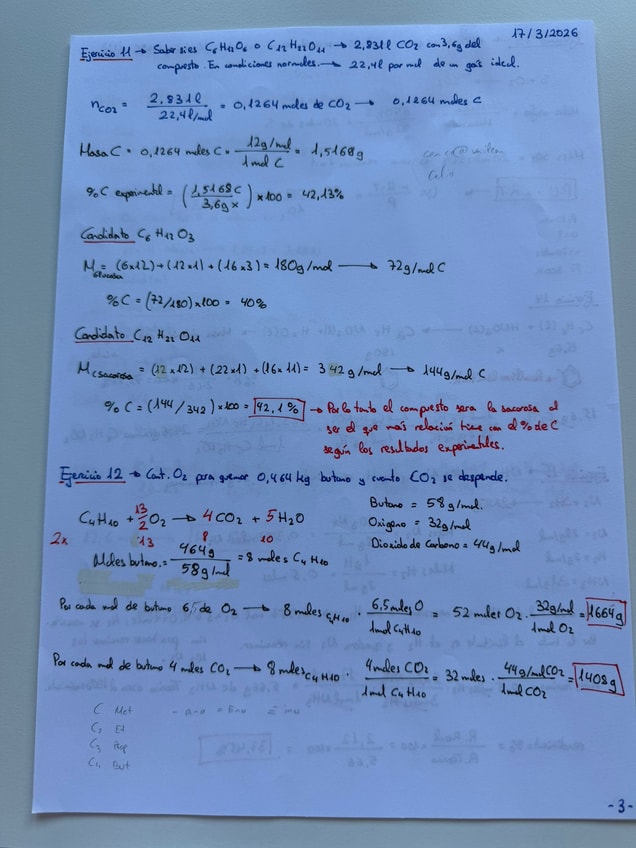 17/3/2026
Ejercicio 11 → Saber si es C6H12O6 o C12H22O11 → 2,831l CO2 con 3,6g del
compuesto. En condiciones normales. → 22,4l por mol de un gas ideal.
nCO2 = 2,831l / 22,4l/mol = 0,1264 moles de CO2 → 0,1264 moles C
Masa C = 0,1264 moles C · 12g/mol / 1mol C = 1,5168g
%C experimental = (1,5168C / 3,6g x) x100 = 42,13%
Candidato C6H12O3
Mglucosa = (6x12)+(12x1)+(16x3) = 180g/mol → 72g/mol C
%C = (72/180)x100 = 40%
Candidato C12H22O11
M(sacarosa = (12x12)+(22x1)+(16x11) = 342g/mol → 144g/mol C
%C = (144/342)x100 = 42,1% → Por lo tanto el compuesto sera la sacarosa al
ser el que más relación tiene con el % de C
según los resultados experimentales.
Ejercicio 12 → Cant. O2 para quemar 0,464kg butano y cuanto CO2 se despende.
C4H10 + 13/2 O2 → 4CO2 + 5H2O
2x 13 8 10
Butano = 58g/mol.
Oxigeno = 32g/mol
Dioxido de Carbono = 44g/mol
Moles butano = 464g / 58g/mol = 8 moles C4H10
Por cada mol de butano 6,5 de O2 → 8 moles C4H10 · 6,5 moles O / 1mol C4H10 = 52 moles O2 · 32g/mol / 1mol O2 = 1664g
Por cada mol de butano 4 moles CO2 → 8 moles C4H10 · 4 moles CO2 / 1mol C4H10 = 32 moles · 44g/mol CO2 / 1mol CO2 = 1408g
C Met - ano
C2 Et
C3 Prop
C4 But
-3-